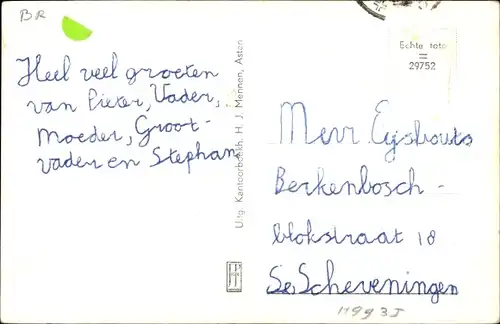 BR
Heel veel groeten
van Pieter, Vader,
Moeder, Groot-
vader en Stephan
Uitg. Kantoorboekh. H. J. Mennen, Asten
Echte foto
=
29752
Mevr Eijsbouts
Berkenbosch-
blokstraat 18
Se, Scheveningen